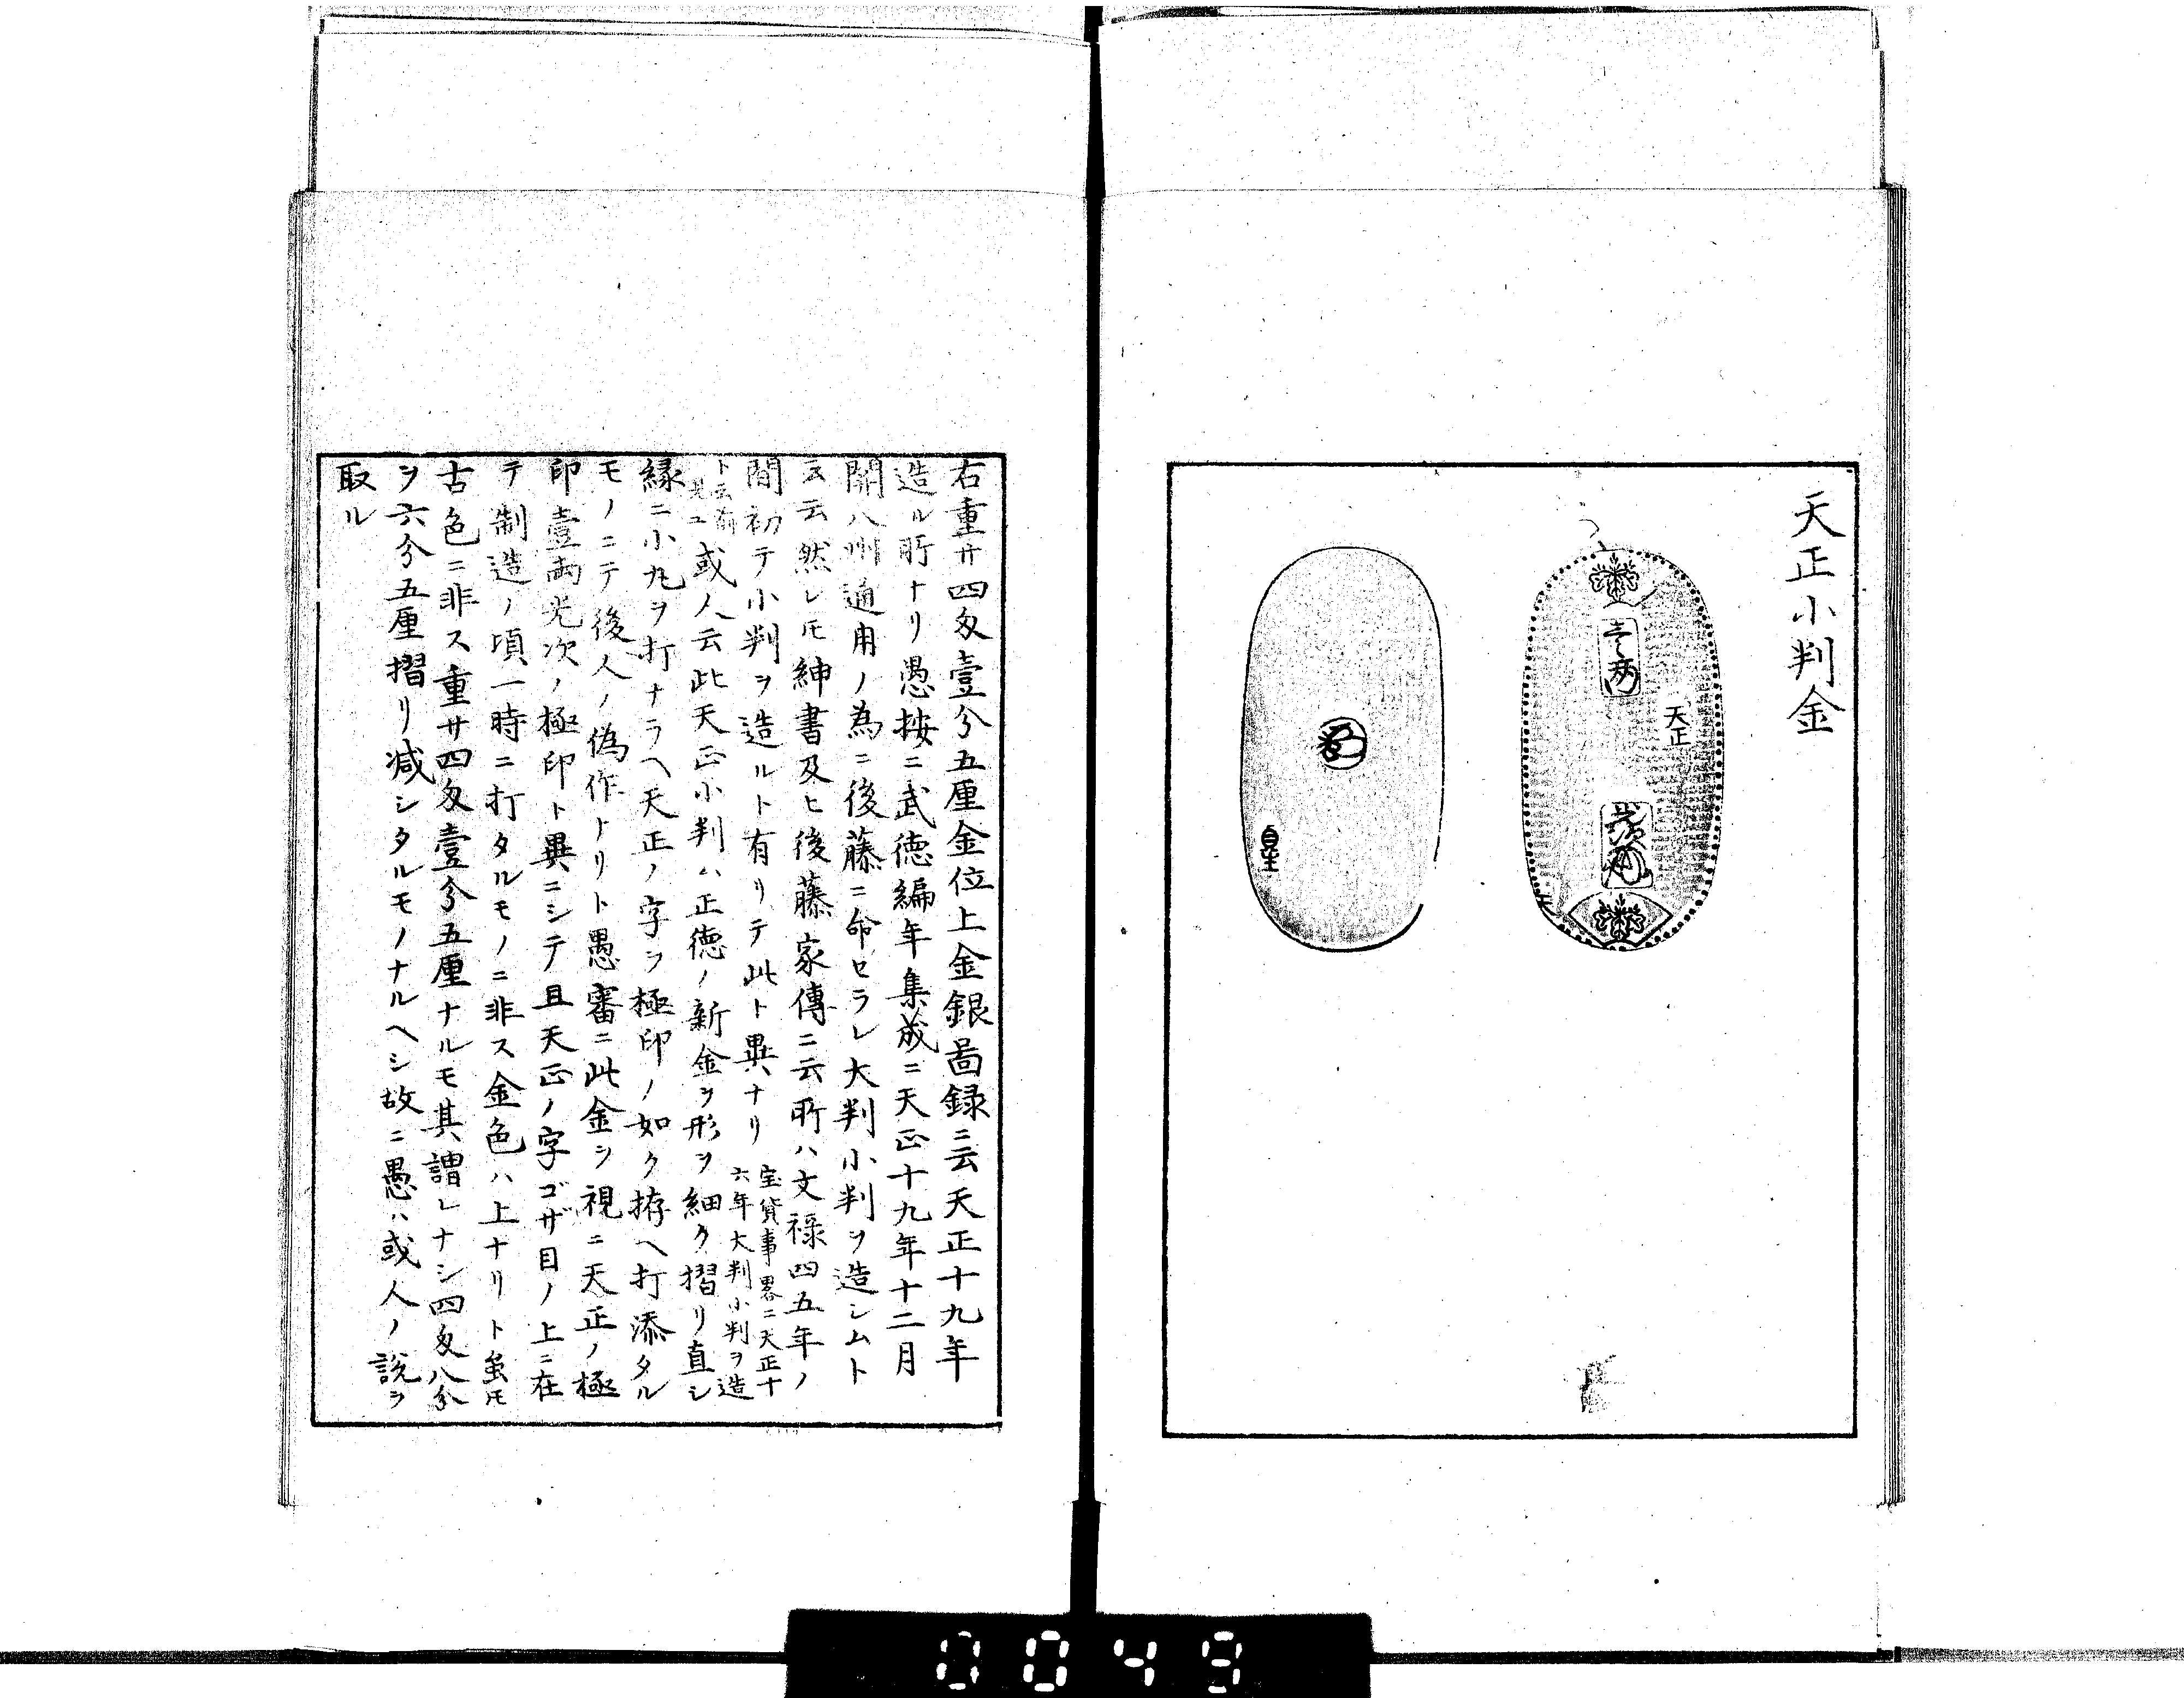 天正小判金
天正
壱両
光次
天
皇
右重廿四匁壹分五厘金位上金銀啚録ニ云天正十九年
造ル所ナリ愚按ニ武徳編年集成ニ天正十九年十二月
關八州通用ノ為ニ後藤ニ命セラレ大判小判ヲ造シムト
云云然レ𪜈紳書及ヒ後藤家傳ニ云所ハ文禄四五年ノ
間初テ小判ヲ造ルト有リテ此ト異ナリ
宝貨事畧ニ天正十
六年大判小判ヲ造
ト云
或人云此天正小判ハ正徳ノ新金ヲ形ヲ細ク摺リ直シ
縁ニ小丸ヲ打ナラヘ天正ノ字ヲ極印ノ如ク拵ヘ打添タル
モノニテ後人ノ偽作ナリト愚審ニ此金ヲ視ニ天正ノ極
印壹両光次ノ極印ト異ニシテ且天正ノ字ゴザ目ノ上ニ在
テ制造ノ頃一時ニ打タルモノニ非ス金色ハ上ナリト虽𪜈
古色ニ非ス重廿四匁壹分五厘ナルモ其謂レナシ四匁八分
ヲ六分五厘摺リ减シタルモノナルヘシ故ニ愚ハ或人ノ説ヲ
取ル
0049